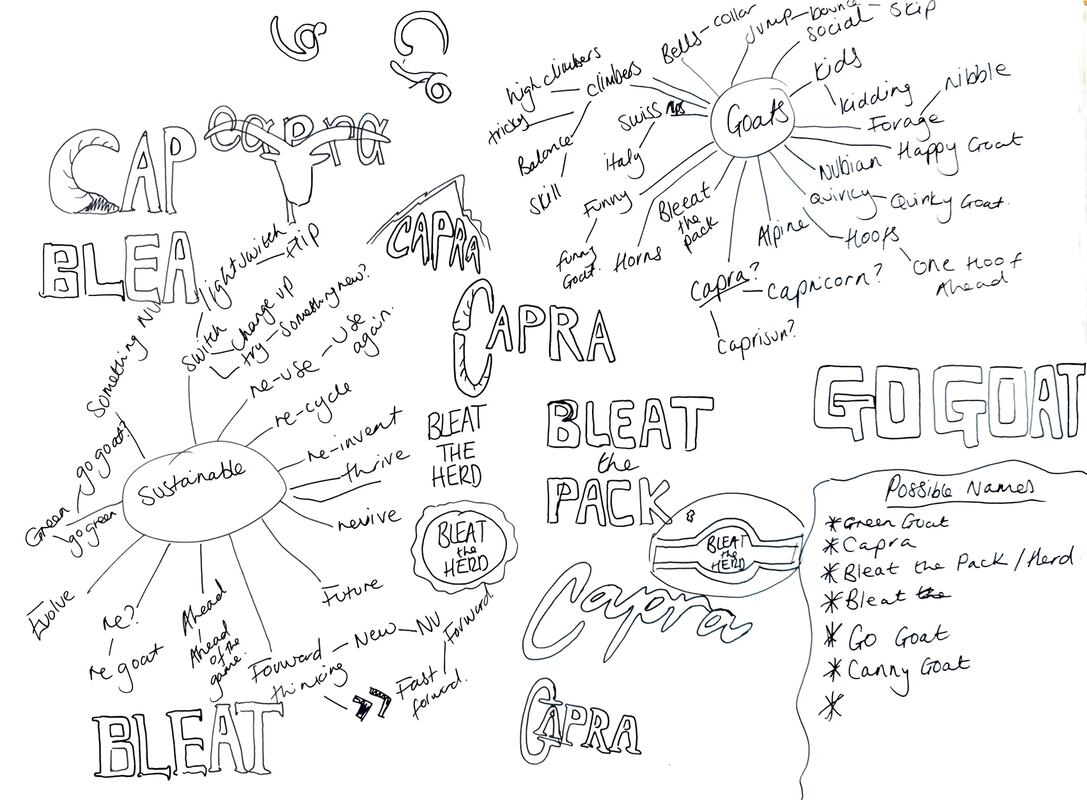 CAP
capra
BLEA
CAPRA
CAPRA
BLEAT
THE
HERD
BLEAT
the
HERD
BLEAT
the
PACK
B
BLEAT
the
HERD
Capra
CAPRA
BLEAT
GO GOAT
Goats
Bells - collar
Jump - bounce - skip
social
Kids
Kidding
Forage
Nibble
Happy Goat
Nubian
Quirky - Quirky Goat.
Hoofs
One Hoof
Ahead
Alpine
Capra? - Capricorn?
Caprisun?
Bleeat
the
pack
Horns
Funny
funny
Goat.
Swiss
Italy
climbers
high climbers
tricky
Balance
Skill
Sustainable
switch
lightswitch - flip
change up
try - something new?
re-use - use
again.
re-cycle
re-invent
thrive
revive
Future
Forward - New - NU
thinking
Fast
forward.
Forward.
Ahead
Ahead
of the
game.
re?
re goat
Evolve
Green
go green
go goat?
Something NU
Possible Names
* Green Goat
* Capra
* Bleat the Pack / Herd
* Bleat the
* Go Goat
* Canny Goat
*